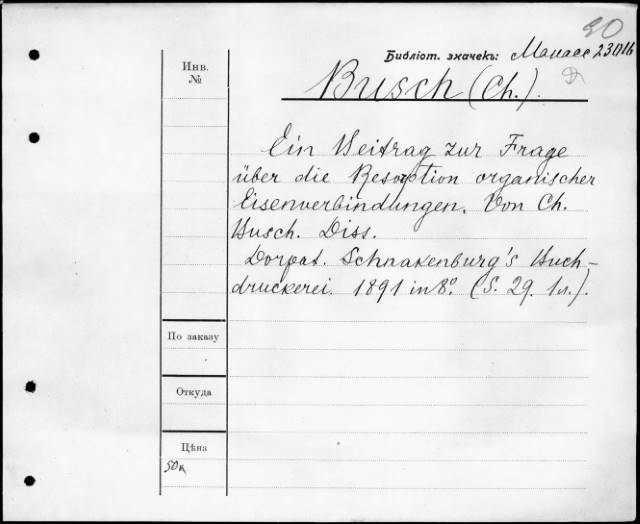 20
Библіот. значекъ: Манасс 23016
Инв.
№
Busch (Ch.).
Ein Beitrag zur Frage
über die Resorption organischer
Eisenverbindungen. Von Ch.
Busch. Diss.
Dorpat. Schnakenburg's Buch-
druckerei. 1891 in 8º. (S. 29. 1 л.).
По заказу
Откуда
Цѣна
50к